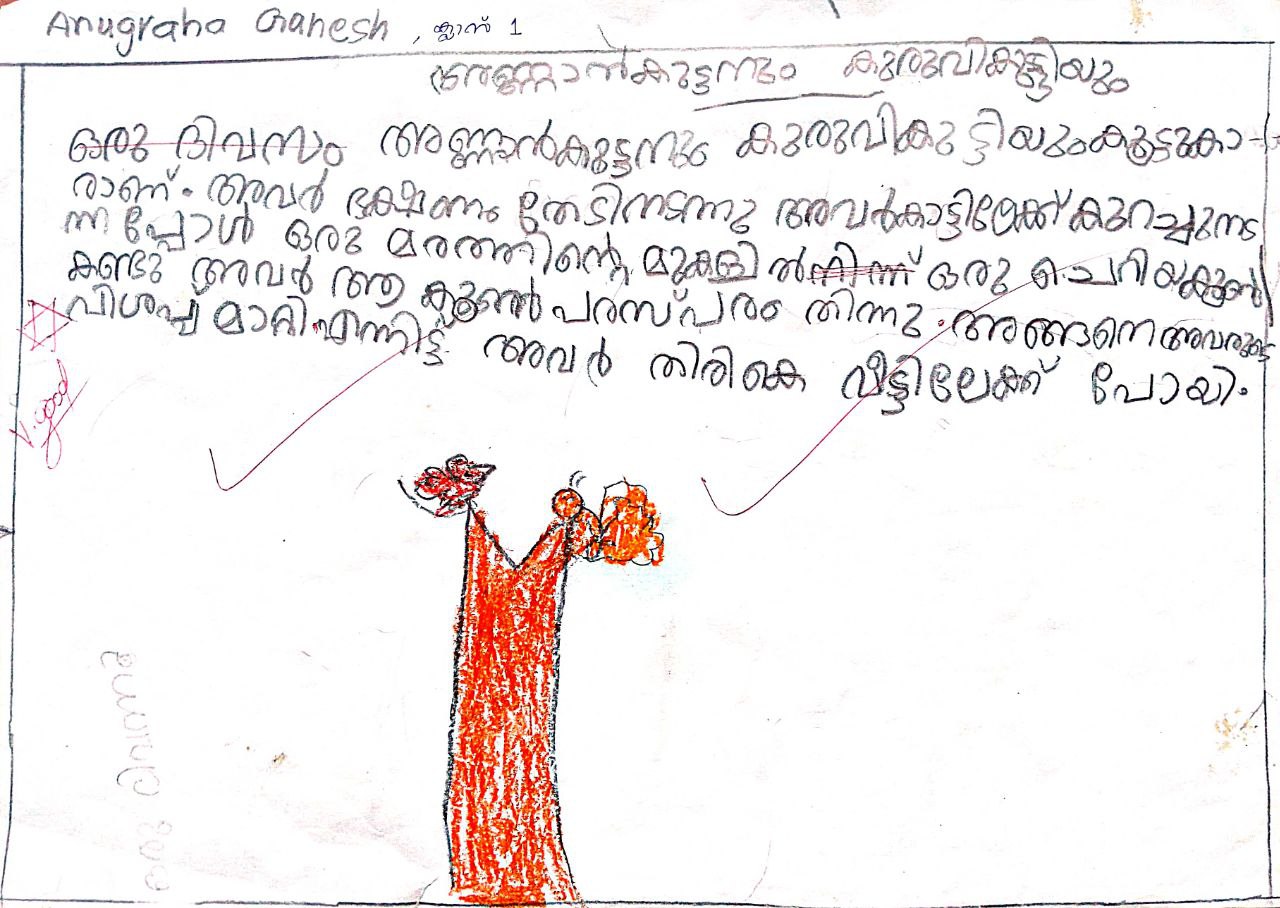 Anugraha Ganesh, ക്ലാസ് 1
അണ്ണാൻകുട്ടനും കുരുവികുട്ടിയും
ഒരു ദിവസം അണ്ണാൻകുട്ടനും കുരുവികുട്ടിയുംകൂട്ടുകാ-
രാണ്. അവർ ഭക്ഷണം തേടിനടന്നു അവർകാട്ടിലേക്ക് കുറച്ചുനട
ന്നപ്പോൾ ഒരു മരത്തിന്റെ മുകളിൽ നിന്ന് ഒരു ചെറിയകൂൺ
കണ്ടു അവർ ആ കൂൺ പരസ്പരം തിന്നു. അങ്ങനെ അവരുടെ
വിശപ്പ് മാറി. എന്നിട്ട് അവർ തിരികെ വീട്ടിലേക്ക് പോയി.
V. good